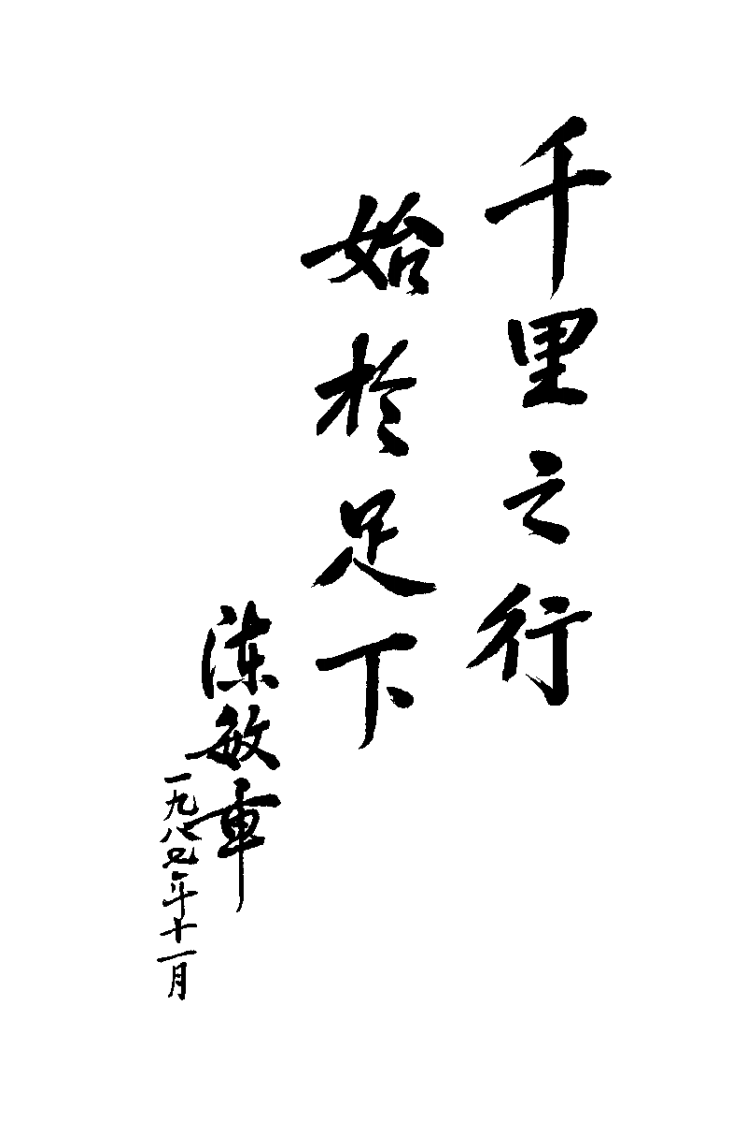 千里之行
始於足下
陈敏章
一九八年十一月